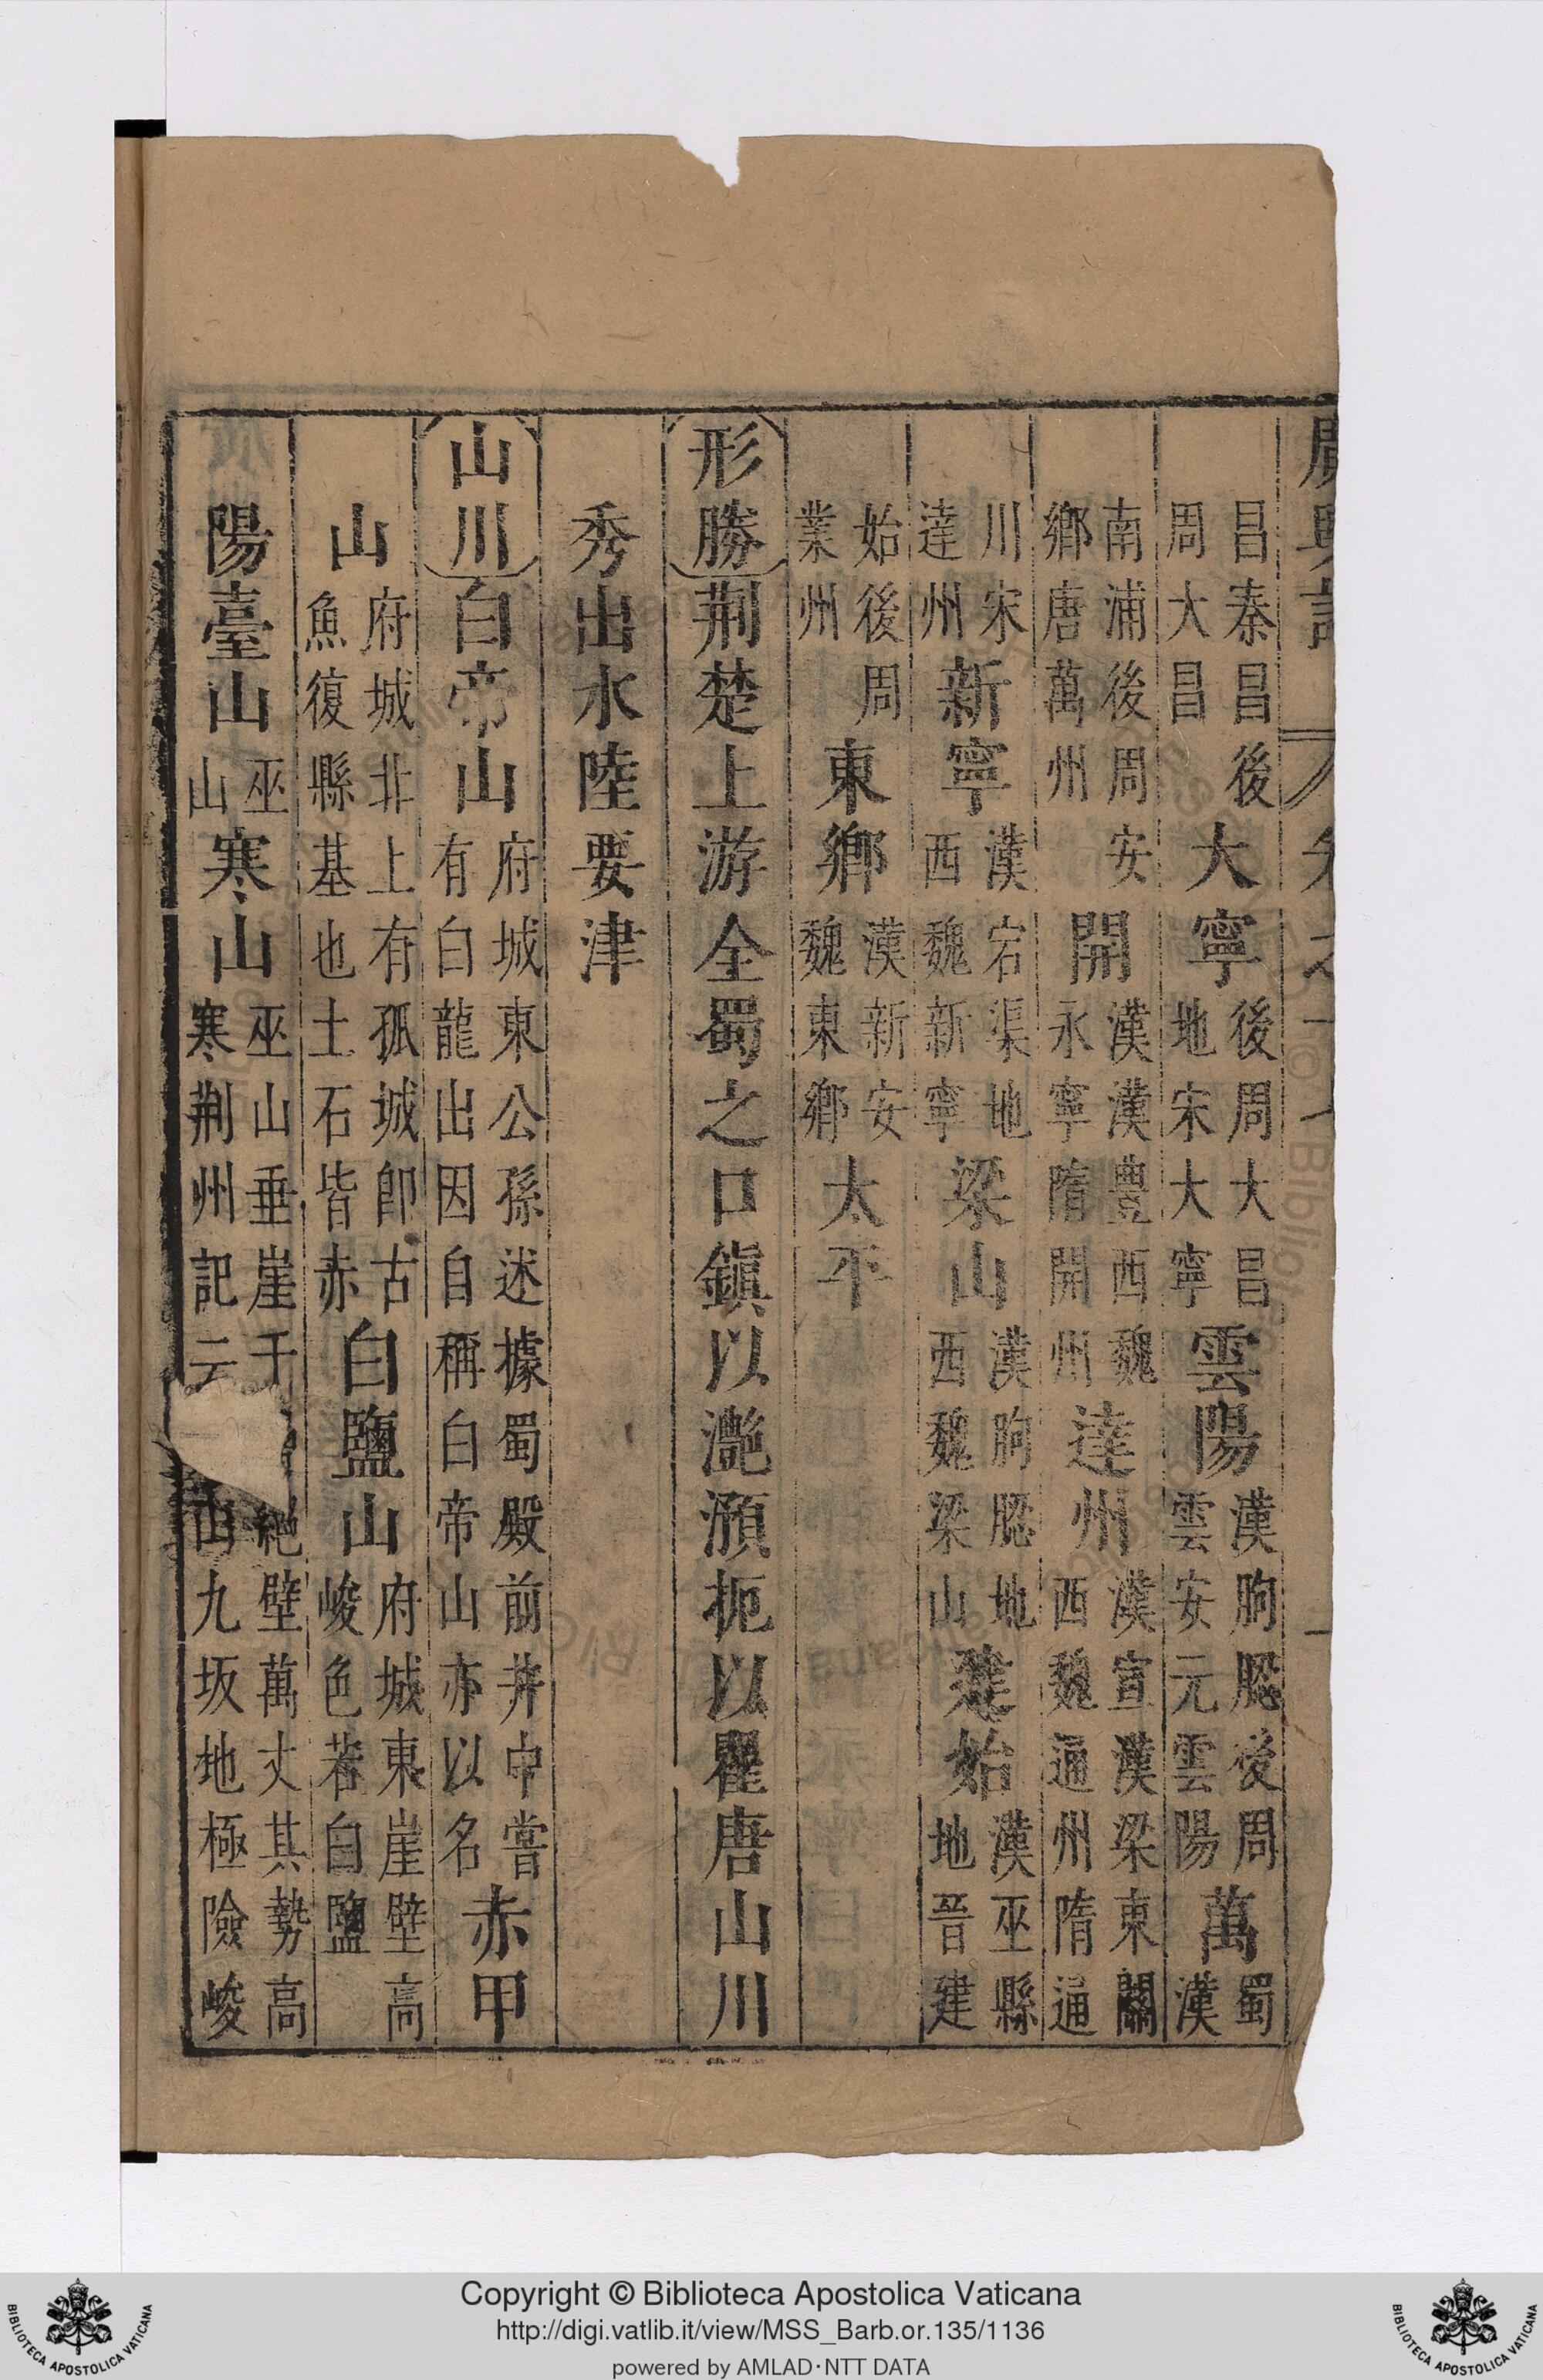 廣輿記
昌秦昌後周大昌大寧後周大昌地宋大寧雲陽漢朐䏰後周雲安元雲陽萬蜀漢
南浦後周安鄉唐萬州開漢漢豊西魏永寧隋開州達州漢宣漢梁東關西魏通州隋通
川宋達州新寧漢宕渠地西魏新寧梁山漢朐䏰地西魏梁山建始漢巫縣地晉建
始後周業州東鄉漢新安魏東鄉太平
形勝荆楚上游全蜀之口鎮以灔澦扼以瞿唐山川
秀出水陸要津
山川白帝山府城東公孫述據蜀殿前井中嘗有白龍出因自稱白帝山亦以名赤甲
山府城北上有孤城卽古魚復縣基也土石皆赤白鹽山府城東崖壁高峻色若白鹽
陽臺山巫山寒山巫山垂崖千絕壁萬丈其勢高寒荆州記云山九坂地極險峻
Copyright © Biblioteca Apostolica Vaticana
http://digi.vatlib.it/view/MSS_Barb.or.135/1136
powered by AMLAD·NTT DATA
BIBLIOTECA APOSTOLICA VATICANA
BIBLIOTECA APOSTOLICA VATICANA